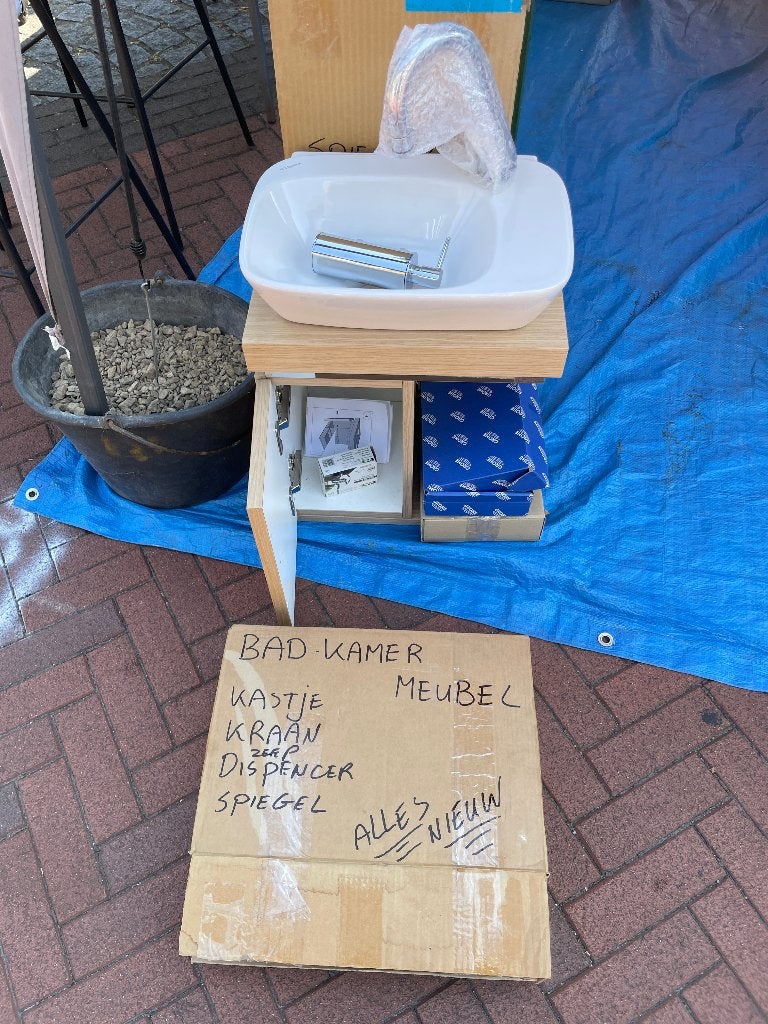 BAD-KAMER
MEUBEL
KASTJE
KRAAN
ZEEP
DISPENCER
SPIEGEL
ALLES
NIEUW